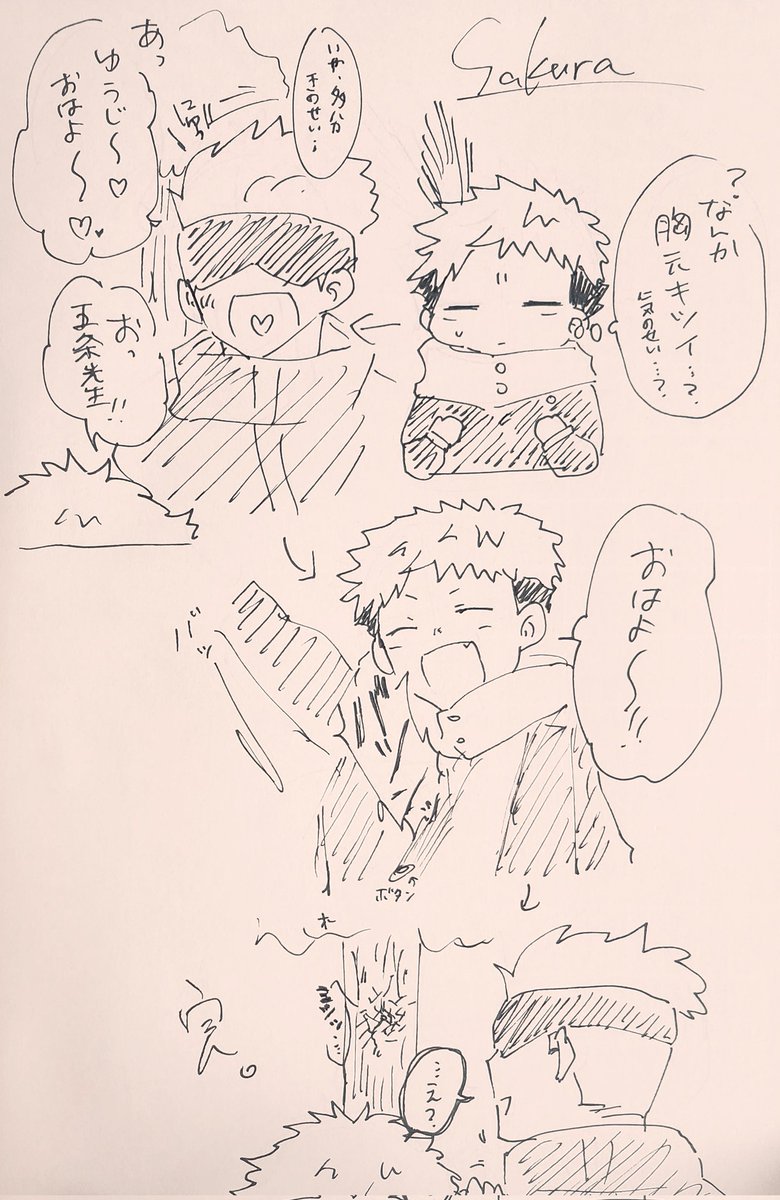 Sakura
?なんか
胸元キツイ…?
気のせい…?
いや、多分
きのせい…
あっ
ゆうじ〜♡
おはよ〜♡♥
おっ
五条先生!!
おはよ〜!!
バッ
ボタン
…え?
完。